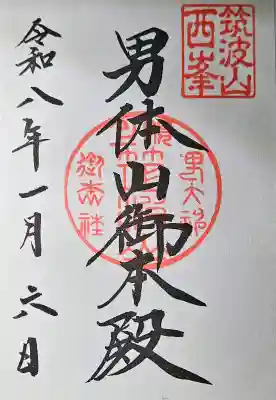 筑波山
西峯
男体山御本殿
令和八年一月六日